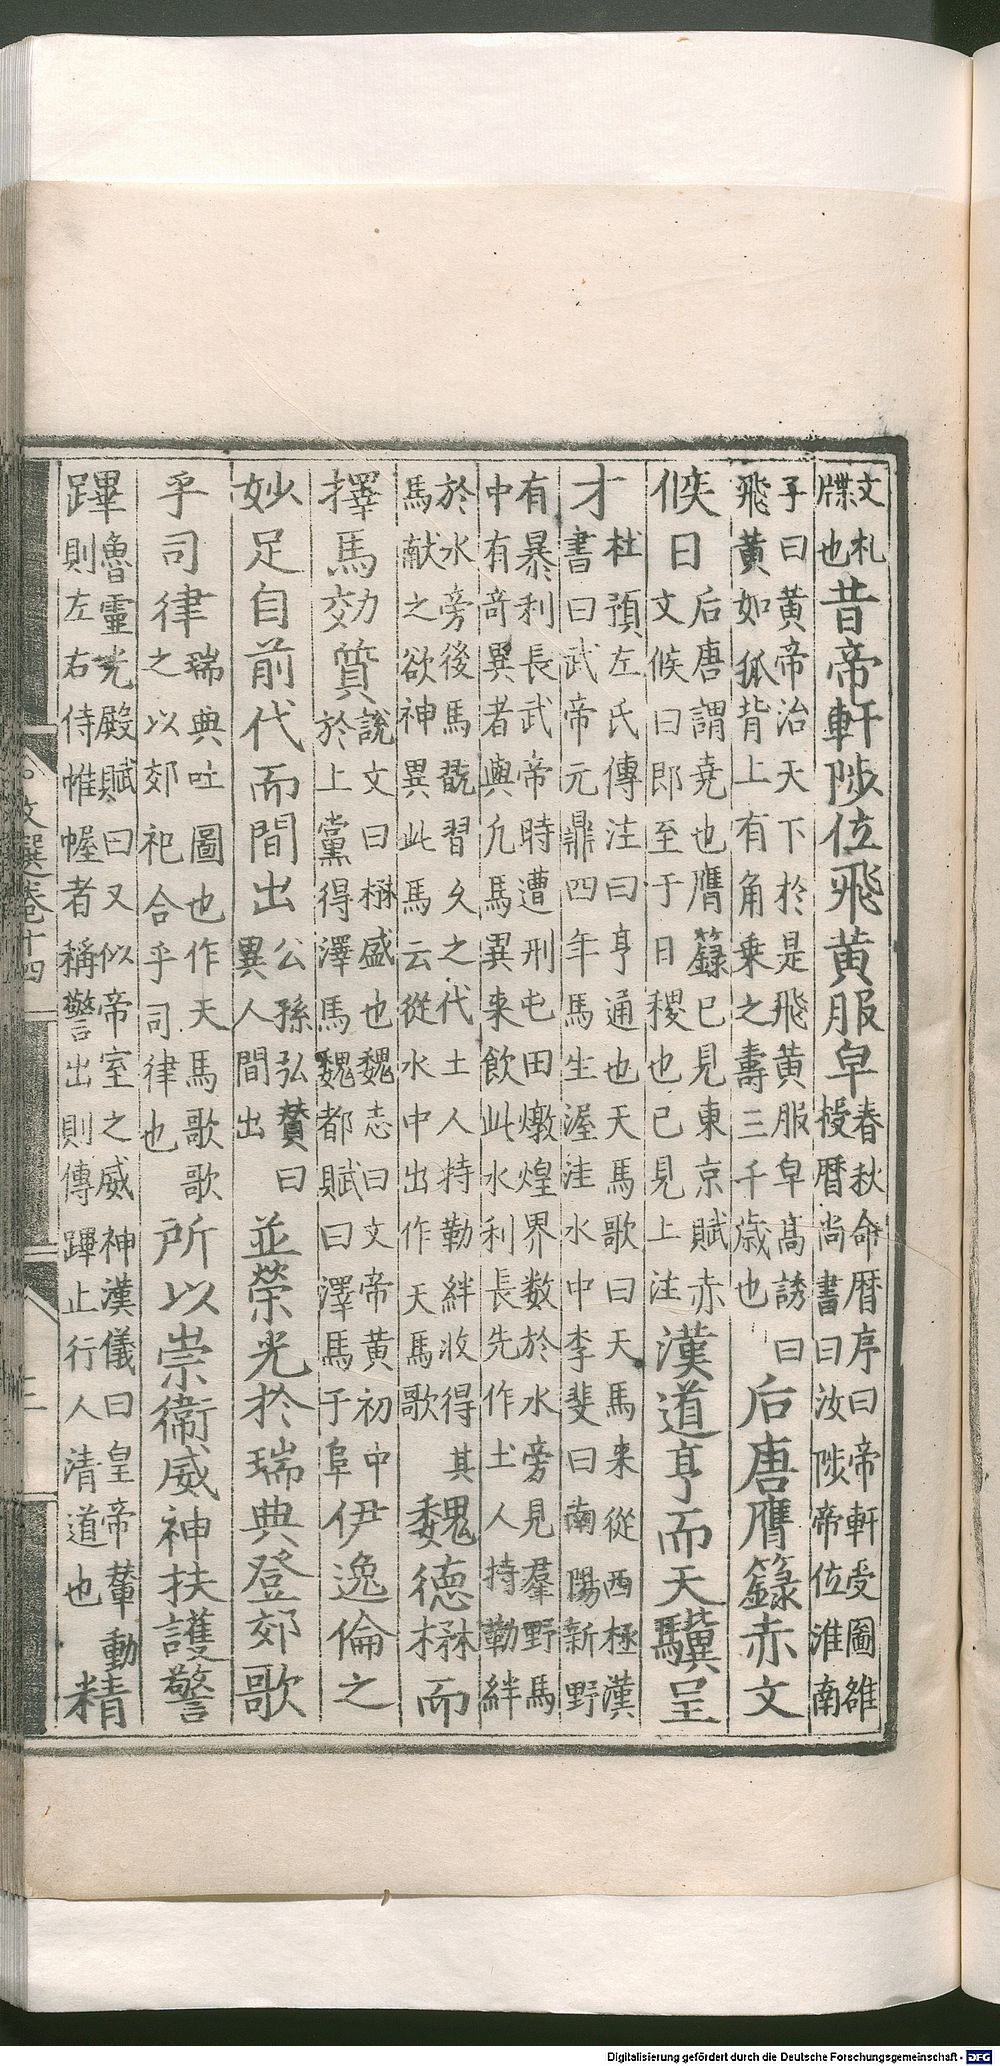 文札牒也昔帝軒陟位飛黃服皁春秋命曆序曰帝軒受圖雒授曆尚書曰汝陟帝位淮南
子曰黃帝治天下於是飛黃服皁高誘曰飛黃如狐背上有角乘之壽三千歲也后唐膺籙赤文
候日后唐謂堯也膺籙已見東京賦赤文候曰郎至于日稷也已見上注漢道亨而天驥呈
才杜預左氏傳注曰亨通也天馬歌曰天馬来從西極漢書曰武帝元鼎四年馬生渥洼水中李斐曰南陽新野
有暴利長武帝時遭刑屯田燉煌界数於水旁見羣野馬中有奇異者與凢馬異来飲此水利長先作土人持勒絆
於水旁後馬翫習久之代土人持勒絆收得其馬献之欲神異此馬云從水中出作天馬歌魏德楙而
擇馬効質說文曰楙盛也魏志曰文帝黃初中於上黨得澤馬魏都賦曰澤馬于阜伊逸倫之
妙足自前代而間出公孫弘贊曰異人間出並榮光於瑞典登郊歌
乎司律瑞典吐圖也作天馬歌歌之以郊祀合乎司律也所以崇衛威神扶護警
蹕魯靈光殿賦曰又似帝室之威神漢儀曰皇帝輦動則左右侍帷幄者稱警出則傳蹕止行人清道也精
文選卷十四
三
Digitalisierung gefördert durch die Deutsche Forschungsgemeinschaft - DFG